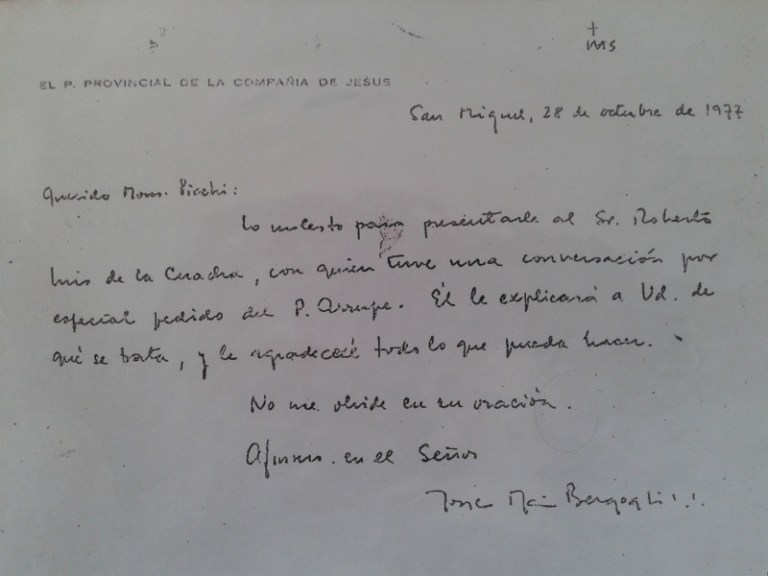 +
IHS
EL P. PROVINCIAL DE LA COMPAÑIA DE JESUS
San Miguel, 28 de octubre de 1977
Querido Mons. Picchi:
Lo molesto para presentarle al Sr. Roberto
Luis de la Cuadra, con quien tuve una conversación por
especial pedido del P. Arrupe. Él le explicará a Ud. de
qué se trata, y le agradeceré todo lo que pueda hacer.
No me olvide en su oración.
Afmo. en el Señor
Jorge Mario Bergoglio s.j.